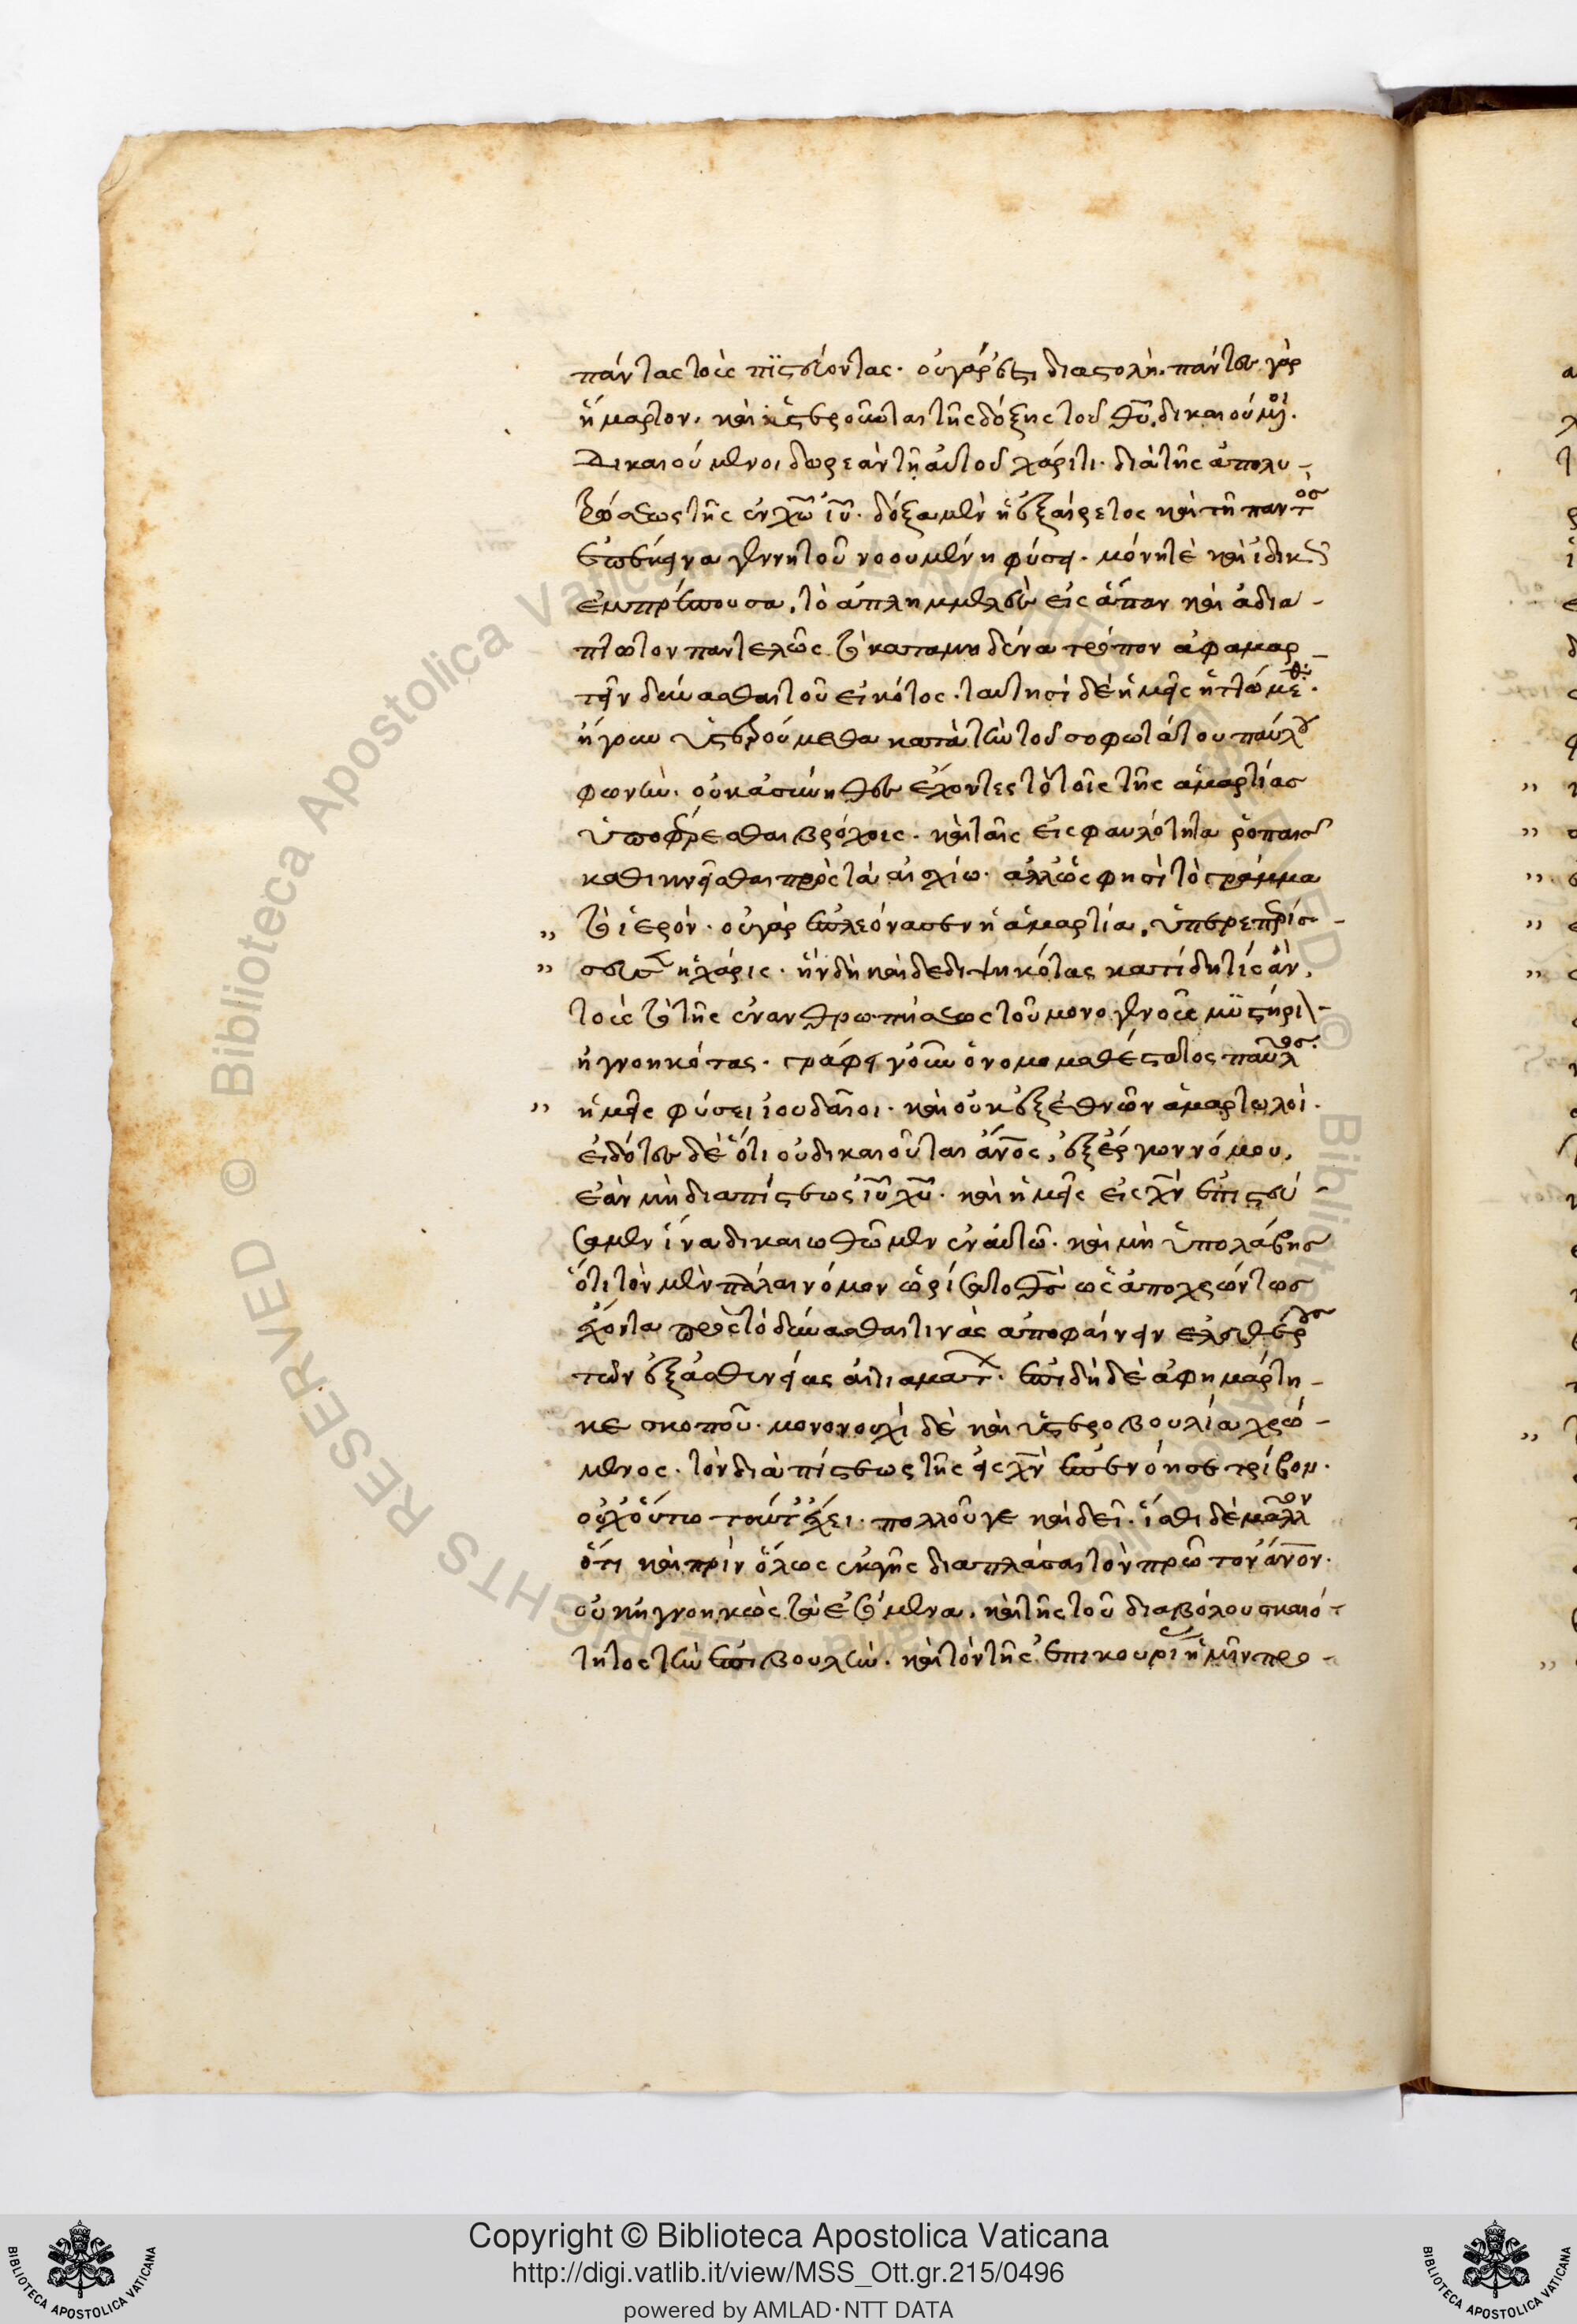 πάντας τοὺς πϊστεύοντας· οὐ γάρ ἐστι διαστολή. πάντες γὰρ
ἥμαρτον, καὶ ὑστεροῦνται τῆς δόξης τοῦ θῡ, δικαιούμενοι.
Δικαιούμενοι δωρεὰν τῇ αὐτοῦ χάριτι· διὰ τῆς ἀπολυ-
τρώσεως τῆς ἐν χω̄ ιῡ. δόξα μὲν ἡ ἐξαίρετος καὶ τῇ παντὸς
ἐπέκεινα γεννητοῦ νοουμένῃ φύσει· μόνῃ τὲ καὶ ἰδικῶς
ἐμπρέπουσα, τὸ ἀπλημμελὲς εἰς ἅπαν καὶ ἀδιά-
πτωτον παντελῶς τὸ κατα μηδένα τρόπον ἀφαμαρ-
τεῖν δύνασθαι τοῦ εἰκότος· ταυτησὶ δὲ ἡμεῖς ἡττώμεθα.
ἤγουν ὑστερούμεθα κατὰ τὴν τοῦ σοφωτάτου παύλου
φωνήν. οὐκ ἀσυνηθὲς ἔχοντες τὸ τοῖς τῆς ἁμαρτίας
ὑποφέρεσθαι βρόχοις· καὶ ταῖς εἰς φαυλότητα ῥοπαῖς
κατακινεῖσθαι πρὸς τὰ αἰσχίω· ἀλλ' ὥς φησὶ τὸ γράμμα
" τὸ ἱερόν· οὐ γὰρ ἐπλεόνασεν ἡ ἁμαρτία, ὑπερεπερίσ-
" σευσεν ἡ χάρις· ἣν δὴ καὶ δεδιψηκότας κατίδῃ τίς ἂν,
τοὺς τὸ τῆς ἐνανθρωπήσεως τοῦ μονογενοῦς μϋστήριον
ἠγνοηκότας· γράφει γοῦν ὁ νομομαθέστατος παῦλος.
" ἡμεῖς φύσει ἰουδαῖοι· καὶ οὐκ ἐξ ἐθνῶν ἁμαρτωλοί.
εἰδότες δὲ ὅτι οὐ δικαιοῦται ἄν̄ος, ἐξ ἔργων νόμου,
ἐὰν μὴ δια πίστεως ιῡ χῡ· καὶ ἡμεῖς εἰς χν̄ ἐπιστεύ-
σαμεν ἵνα δικαιωθῶμεν ἐν αὐτῶ· καὶ μὴ ὑπολάβης
ὅτι τὸν μὲν πάλαι νόμον ὡρίσατο θς̄ ὡς ἀποχρώντως
ἔχοντα πρὸς τὸ δύνασθαι τινὰς ἀποφαίνειν ἐλευθέρους
τῶν ἐξ ἀσθενείας αἰτιαμάτων· ἐπειδὴ δὲ ἀφημάρτη-
κε σκοποῦ· μονονουχὶ δὲ καὶ ὑστεροβουλία χρώ-
μενος· τὸν διὰ πίστεως τῆς εἰς χν̄ ἐπενόησε τρίβον.
οὐχ οὕτω ταῦτ' ἔχει· πολλοῦ γε καὶ δεῖ· ἴσθι δὲ μᾶλλον
ὅτι καὶ πρὶν ὅλως ἐκ γῆς διαπλάσαι τὸν πρῶτον ἄν̄ον.
οὐκ ἠγνοηκὼς τὰ ἐσόμενα, καὶ τῆς τοῦ διαβόλου σκαιό-
τητος τὴν ἐπιβουλήν· καὶ τὸν τῆς ἐπικουρίας ἡμῖν προ-
Copyright © Biblioteca Apostolica Vaticana
http://digi.vatlib.it/view/MSS_Ott.gr.215/0496
powered by AMLAD·NTT DATA